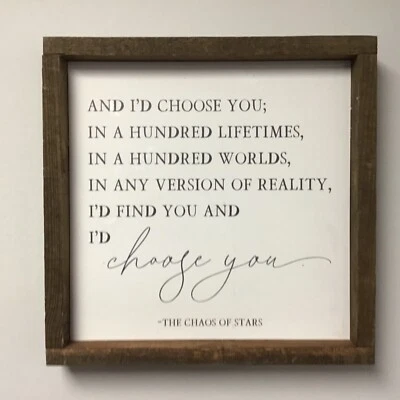 AND I'D CHOOSE YOU;
IN A HUNDRED LIFETIMES,
IN A HUNDRED WORLDS,
IN ANY VERSION OF REALITY,
I'D FIND YOU AND
I'D choose you.
-THE CHAOS OF STARS